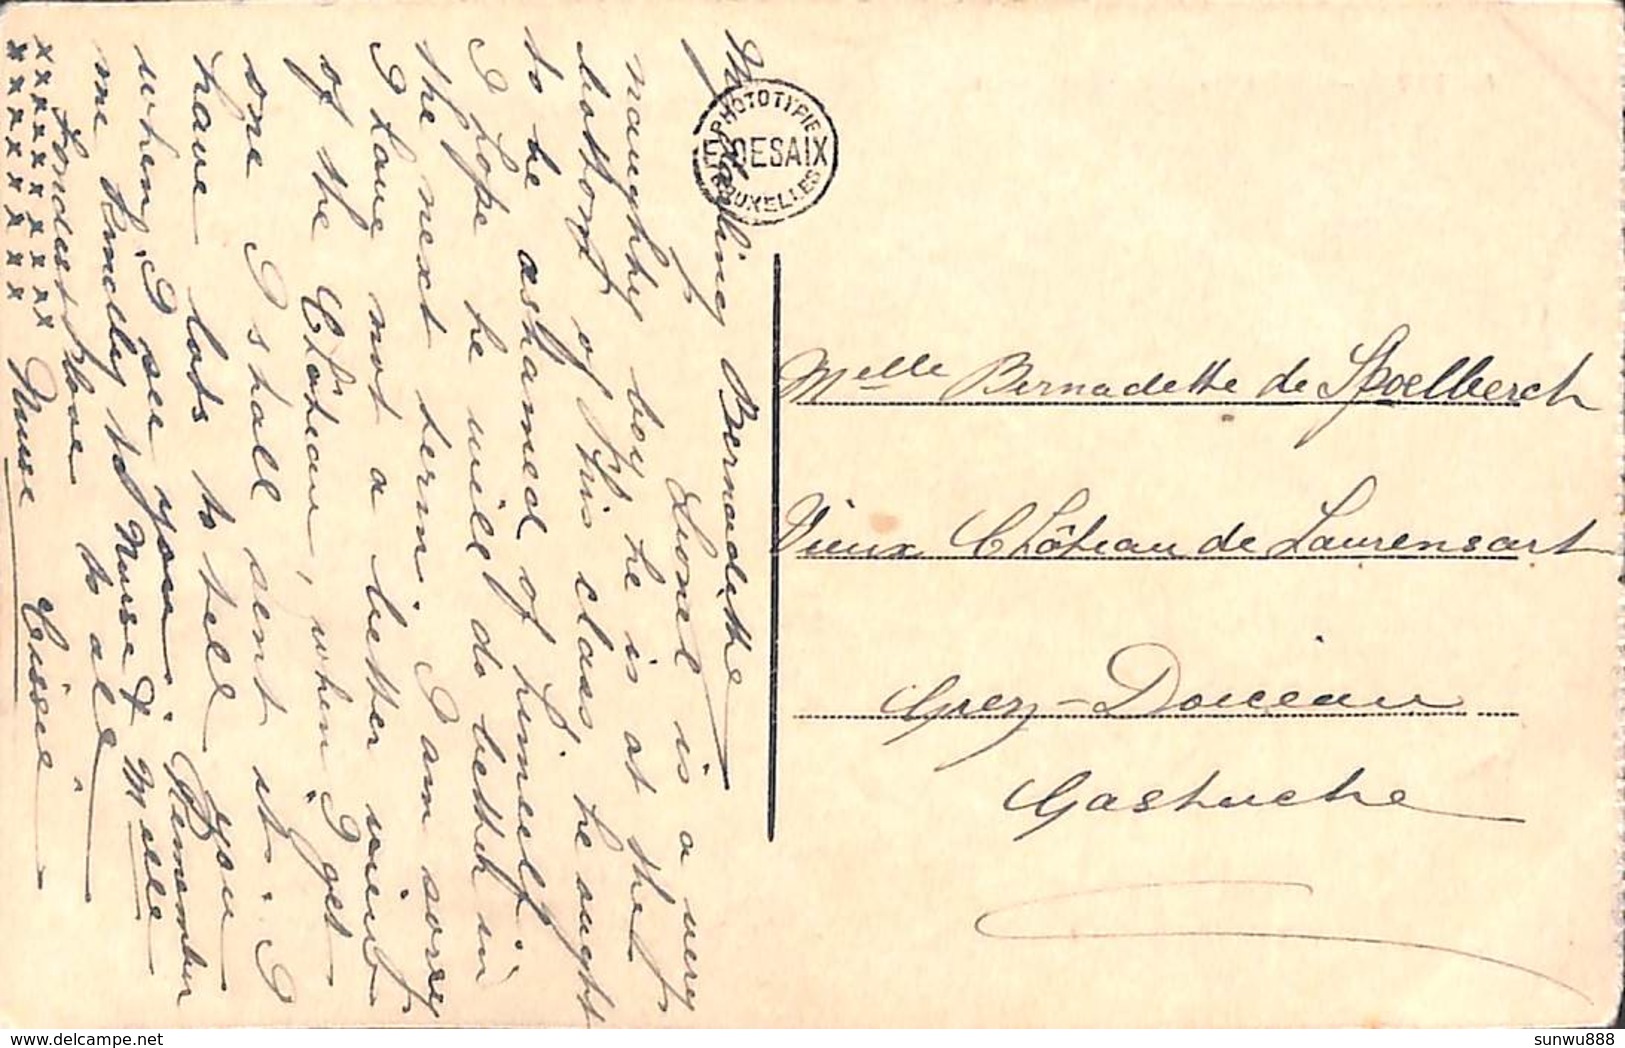 My darling Bernadette
Lionel is a very
naughty boy he is at the
bottom of his class he ought
to be ashamed of himself.
I hope he will do better in
the next term. I am sorry
I have not a better view
of the Château, when I get
one I shall sent it. I
have lots to tell you
when I see you. Remember
me kindly to Nurse & Melle
Fondest love to all
Nurse
xxxxxxxxx
xxxxxxxx
PHOTOTYPIE
E. DESAIX
BRUXELLES
Melle Bernadette de Spoelberch
Vieux Château de Laurensart
Grez-Doiceau
Gastuche
delcampe.net
sunwu888